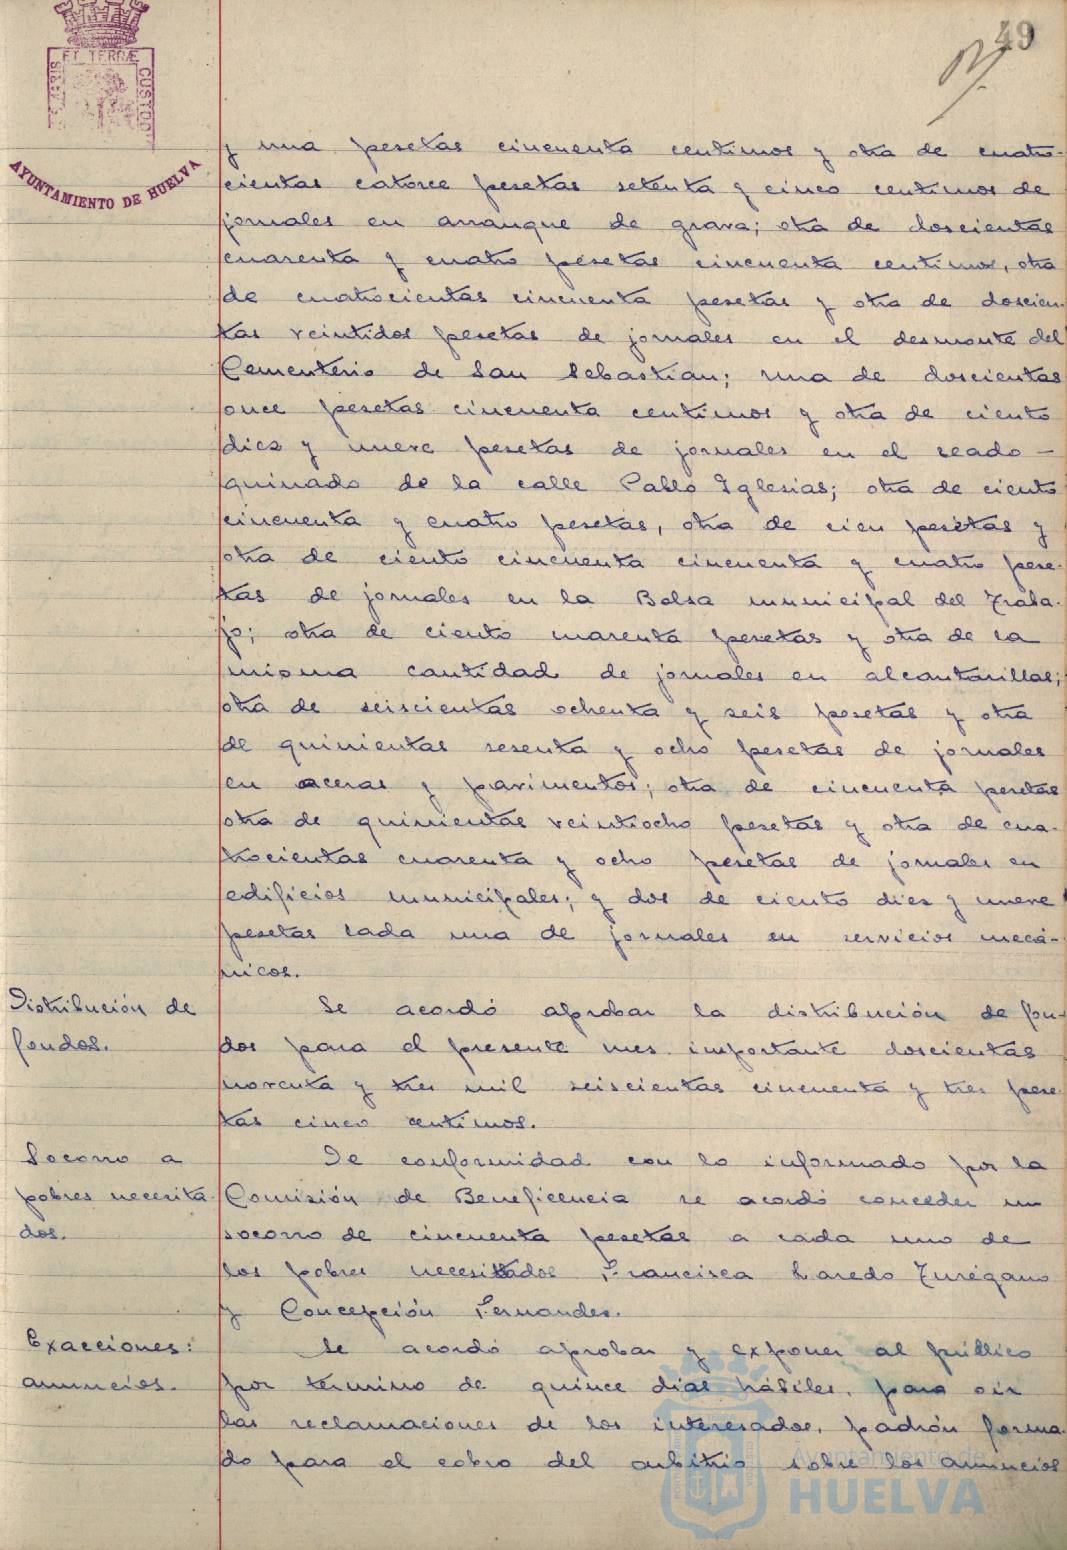 49
PORTUS MARIS ET TERRÆ CUSTODIA
AYUNTAMIENTO DE HUELVA
y una pesetas cincuenta centimos y otra de cuatro-
cientas catorce pesetas setenta y cinco centimos de
jornales en arranque de grava; otra de doscientas
cuarenta y cuatro pesetas cincuenta centimos, otra
de cuatrocientas cincuenta pesetas y otra de doscien-
tas veintidos pesetas de jornales en el desmonte del
Cementerio de San Sebastián; una de doscientas
once pesetas cincuenta centimos y otra de ciento
diez y nueve pesetas de jornales en el reado-
quinado de la calle Pablo Iglesias; otra de ciento
cincuenta y cuatro pesetas, otra de cien pesetas y
otra de ciento cincuenta cincuenta y cuatro pese-
tas de jornales en la Bolsa municipal del Traba-
jo; otra de ciento cuarenta pesetas y otra de la
misma cantidad de jornales en alcantarillas;
otra de seiscientas ochenta y seis pesetas y otra
de quinientas sesenta y ocho pesetas de jornales
en aceras y pavimentos; otra de cincuenta pesetas
otra de quinientas veintiocho pesetas y otra de cua-
trocientas cuarenta y ocho pesetas de jornales en
edificios municipales; y dos de ciento diez y nueve
pesetas cada una de jornales en servicios mecá-
nicos.
Distribución de
fondos.
Se acordó aprobar la distribución de fon-
dos para el presente mes importante doscientas
noventa y tres mil seiscientas cincuenta y tres pese-
tas cinco centimos.
Socorro a
pobres necesita-
dos.
De conformidad con lo informado por la
Comisión de Beneficencia se acordó conceder un
socorro de cincuenta pesetas a cada uno de
los pobres necesitados Francisca Laredo Turégano
y Concepción Fernandez.
Exacciones:
anuncios.
Se acordó aprobar y exponer al público
por termino de quince dias hábiles, para oir
las reclamaciones de los interesados, padrón forma-
do para el cobro del arbitrio sobre los anuncios
Ayuntamiento de
HUELVA